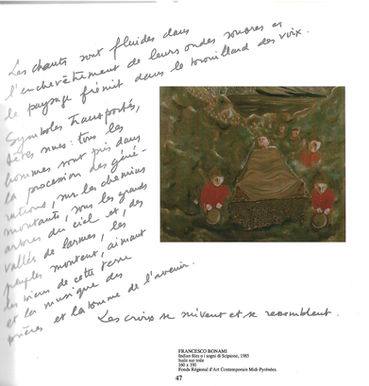 Les chants sont fluides dans
l'enchevêtrement de leurs ondes sonores et
le paysage frémit dans le brouillard des voix.
Symboles transportés,
têtes nues : tous les
hommes sont pris dans
la procession des géné-
rations, sur les chemins
montants, sous les grands
arbres du ciel et des
vallés de larmes, les
peuples montent, aimant
les biens de cette terre
et la musique des
prières et la somme de l'avenir.
Les croix se suivent et se ressemblent.
FRANCESCO BONAMI
Indian fila o i sogni di Scipione, 1985
huile sur toile
160 x 190
Fonds Régional d'Art Contemporain Midi-Pyrénées.
47